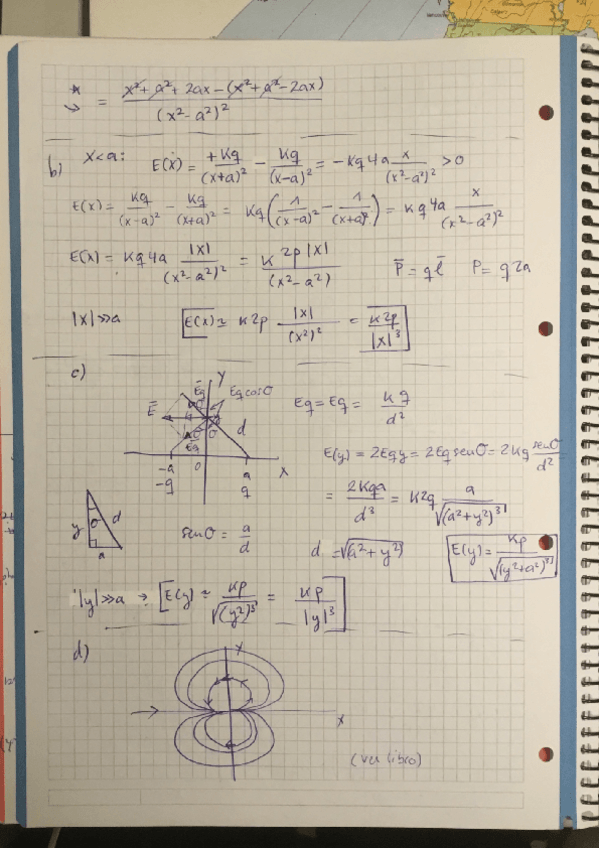 * ↪ = (x² + a² + 2ax - (x² + a² - 2ax)) / (x² - a²)²
b) x<a: E(x) = +Kq/(x+a)² - Kq/(x-a)² = -Kq4a x/(x²-a²)² > 0
E(x) = Kq/(x-a)² - Kq/(x+a)² = Kq(1/(x-a)² - 1/(x+a)²) = Kq4a x/(x²-a²)²
E(x) = Kq4a |x|/(x²-a²)² = K2p|x|/(x²-a²) P̄ = qℓ̄ P = q2a
|x|≫a [E(x) ≃ K2p |x|/(x²)² = K2p/|x|³]
c)
Y
Ēq
Eq cosθ
Ē
θ
d
Ēq
-a
-q
0
a
q
X
Eq = Eq = Kq/d²
E(y) = 2Eqy = 2Eq senθ = 2Kq senθ/d²
= 2Kqa/d³ = K2q a/√(a²+y²)³
y θ d
a
senθ = a/d
d = √(a²+y²)
E(y) = Kp/√(y²+a²)³
|y|≫a → [E(y) ≃ Kp/√(y²)³ = Kp/|y|³]
d)
Y
x
(ver libro)